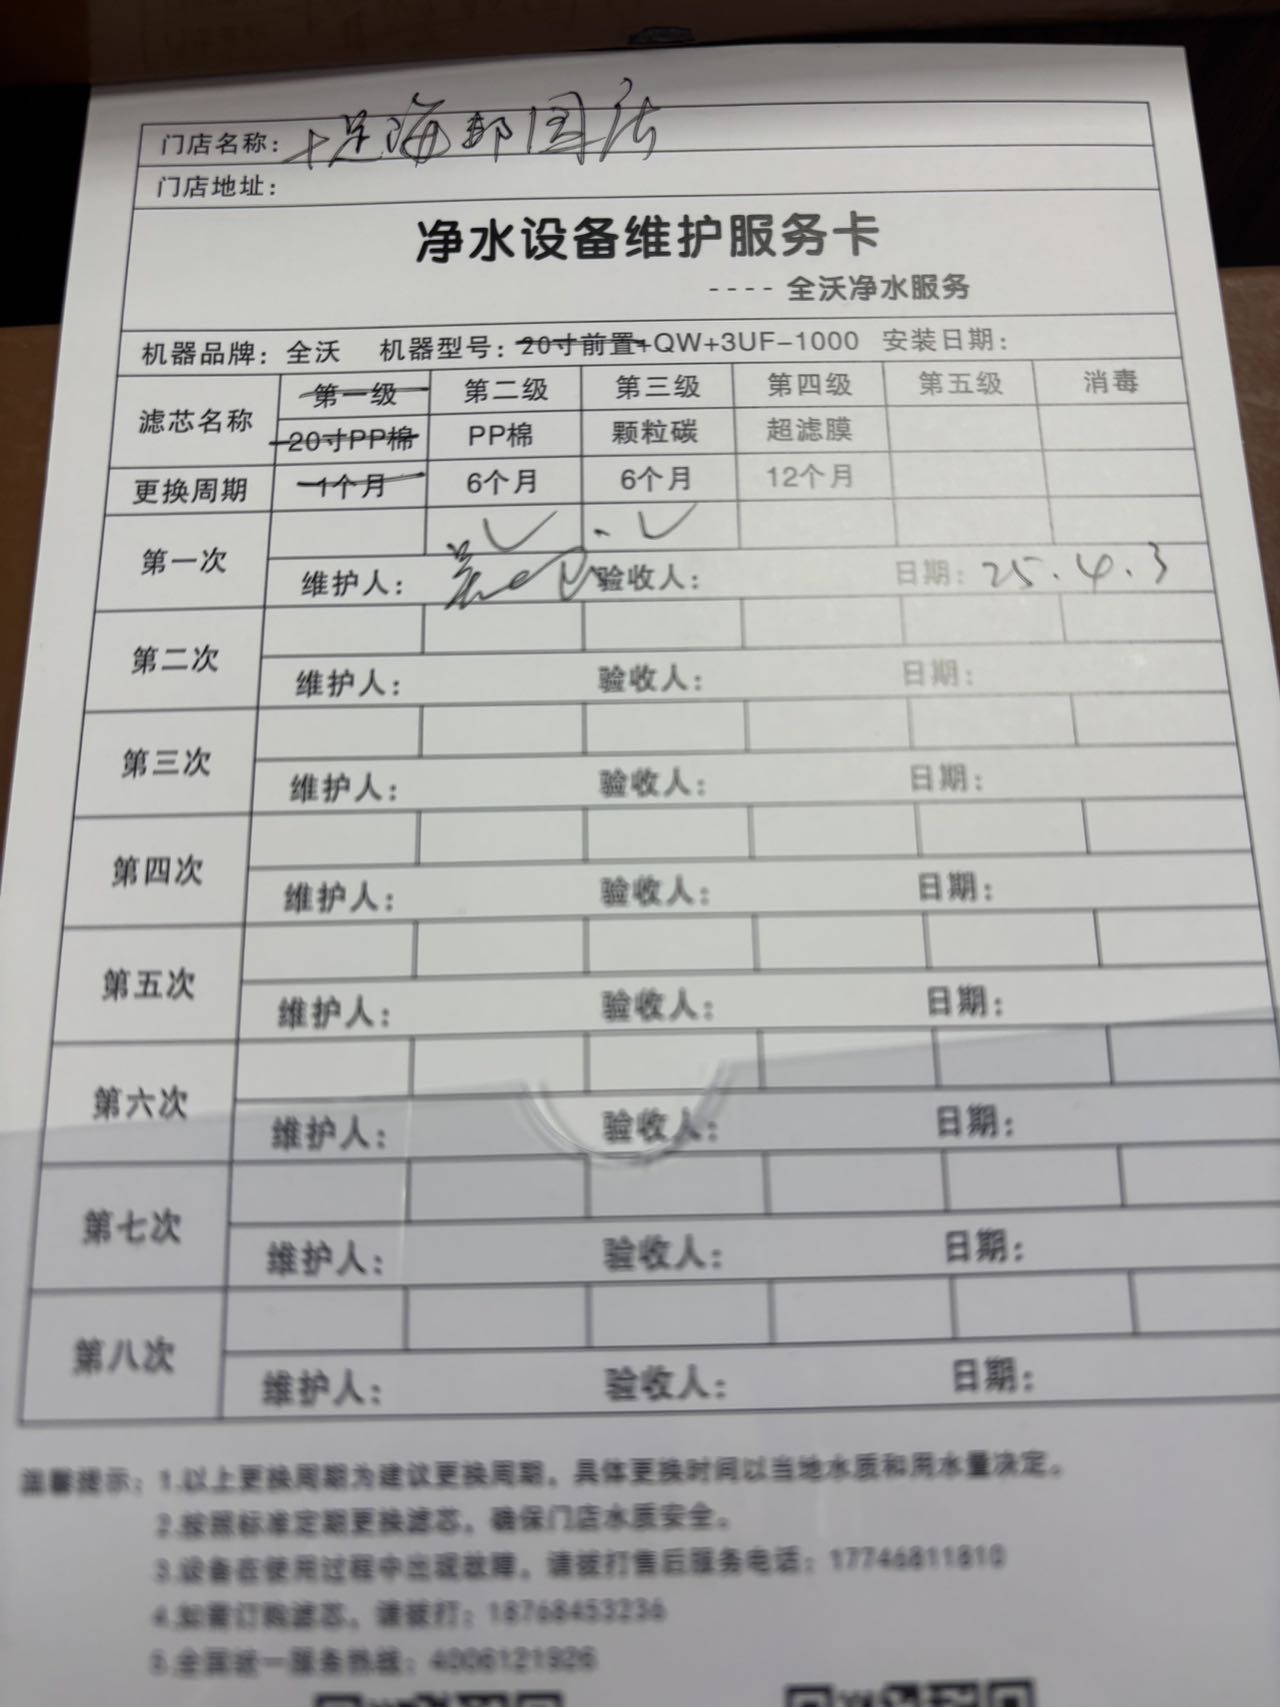 门店名称：十足海郡园店
门店地址：
净水设备维护服务卡
---- 全沃净水服务
机器品牌：全沃 机器型号：20寸前置+QW+3UF-1000 安装日期：
滤芯名称 第一级 第二级 第三级 第四级 第五级 消毒
20寸PP棉 PP棉 颗粒碳 超滤膜
更换周期 1个月 6个月 6个月 12个月
第一次
维护人： 验收人： 日期：25.4.3
第二次
维护人： 验收人： 日期：
第三次
维护人： 验收人： 日期：
第四次
维护人： 验收人： 日期：
第五次
维护人： 验收人： 日期：
第六次
维护人： 验收人： 日期：
第七次
维护人： 验收人： 日期：
第八次
维护人： 验收人： 日期：
温馨提示：1.以上更换周期为建议更换周期，具体更换时间以当地水质和用水量决定。
2.按照标准定期更换滤芯，确保门店水质安全。
3.设备在使用过程中出现故障，请拨打售后服务电话：17746811810
4.如需订购滤芯，请拨打：18768453236
5.全国统一服务热线：4006121926